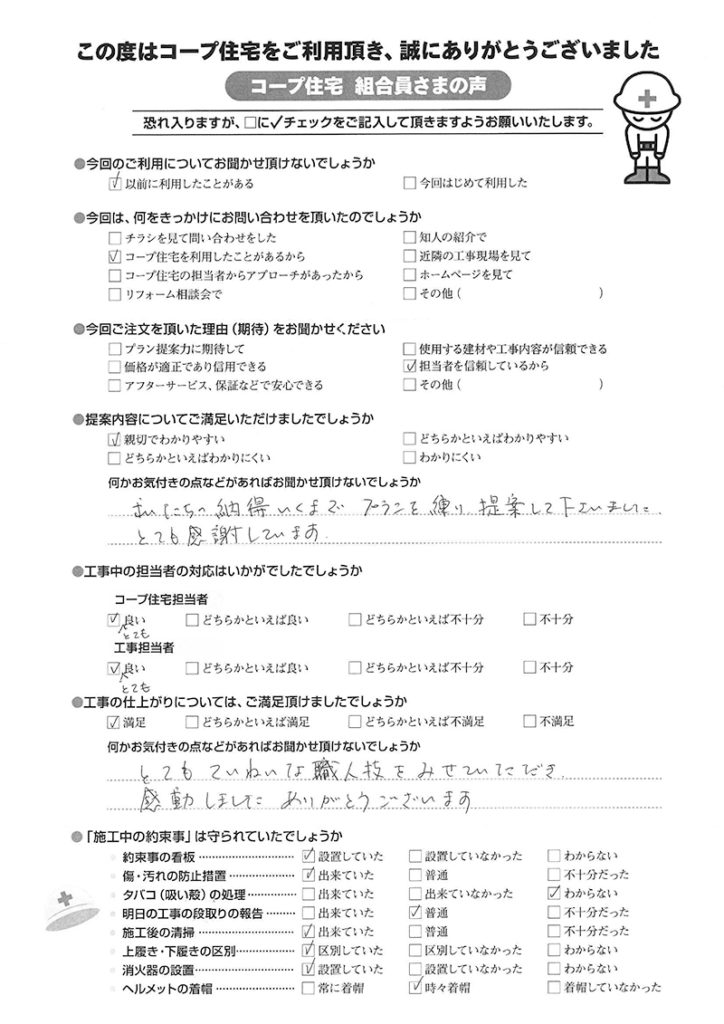 この度はコープ住宅をご利用頂き、誠にありがとうございました
コープ住宅 組合員さまの声
恐れ入りますが、□に✓チェックをご記入して頂きますようお願いいたします。
●今回のご利用についてお聞かせ頂けないでしょうか
☑以前に利用したことがある □今回はじめて利用した
●今回は、何をきっかけにお問い合わせを頂いたのでしょうか
□チラシを見て問い合わせをした □知人の紹介で
☑コープ住宅を利用したことがあるから □近隣の工事現場を見て
□コープ住宅の担当者からアプローチがあったから □ホームページを見て
□リフォーム相談会で □その他( )
●今回ご注文を頂いた理由(期待)をお聞かせください
□プラン提案力に期待して □使用する建材や工事内容が信頼できる
□価格が適正であり信用できる ☑担当者を信頼しているから
□アフターサービス、保証などで安心できる □その他( )
●提案内容についてご満足いただけましたでしょうか
☑親切でわかりやすい □どちらかといえばわかりやすい
□どちらかといえばわかりにくい □わかりにくい
何かお気付きの点などがあればお聞かせ頂けないでしょうか
私たちの納得いくまで プランを練り、提案して下さいました
とても感謝しています
●工事中の担当者の対応はいかがでしたでしょうか
コープ住宅担当者
☑良い □どちらかといえば良い □どちらかといえば不十分 □不十分
とても
工事担当者
☑良い □どちらかといえば良い □どちらかといえば不十分 □不十分
とても
●工事の仕上がりについては、ご満足頂けましたでしょうか
☑満足 □どちらかといえば満足 □どちらかといえば不満足 □不満足
何かお気付きの点などがあればお聞かせ頂けないでしょうか
とても ていねいな職人技をみせていただき、
感動しました ありがとうございます
●「施工中の約束事」は守られていたでしょうか
約束事の看板 ☑設置していた □設置していなかった □わからない
傷・汚れの防止措置 ☑出来ていた □普通 □不十分だった
タバコ(吸い殻)の処理 □出来ていた □出来ていなかった ☑わからない
明日の工事の段取りの報告 □出来ていた ☑普通 □不十分だった
施工後の清掃 ☑出来ていた □普通 □不十分だった
上履き・下履きの区別 ☑区別していた □区別していなかった □わからない
消火器の設置 ☑設置していた □設置していなかった □わからない
ヘルメットの着帽 □常に着帽 ☑時々着帽 □着帽していなかった